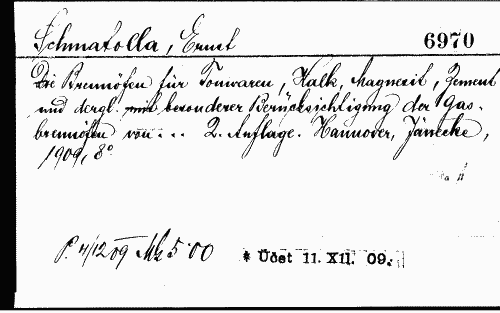 Schmatolla, Ernst 6970
Die Brennöfen für Tonwaren, Kalk, Magnesit, Zement
und dergl. mit besonderer Berücksichtigung der Gas-
brennöfen von ... 2. Auflage. Hannover, Jänecke,
1909, 8°
P. 4/12 09 Mk 5.00 * Üdet 11. XII. 09.